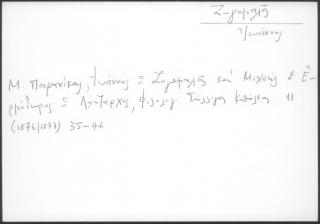 Ζυγομαλᾶς
Ἰωάννης
Μ. Παρανίκας, Ἰωάννης ὁ Ζυγομαλᾶς καὶ Μιχαὴλ ὁ Ἑ-
ρμόδωρος ὁ Λήσταρχος, Φιλολογ. Σύλλογος Κπόλεως 11
(1876/1877) 35-46.